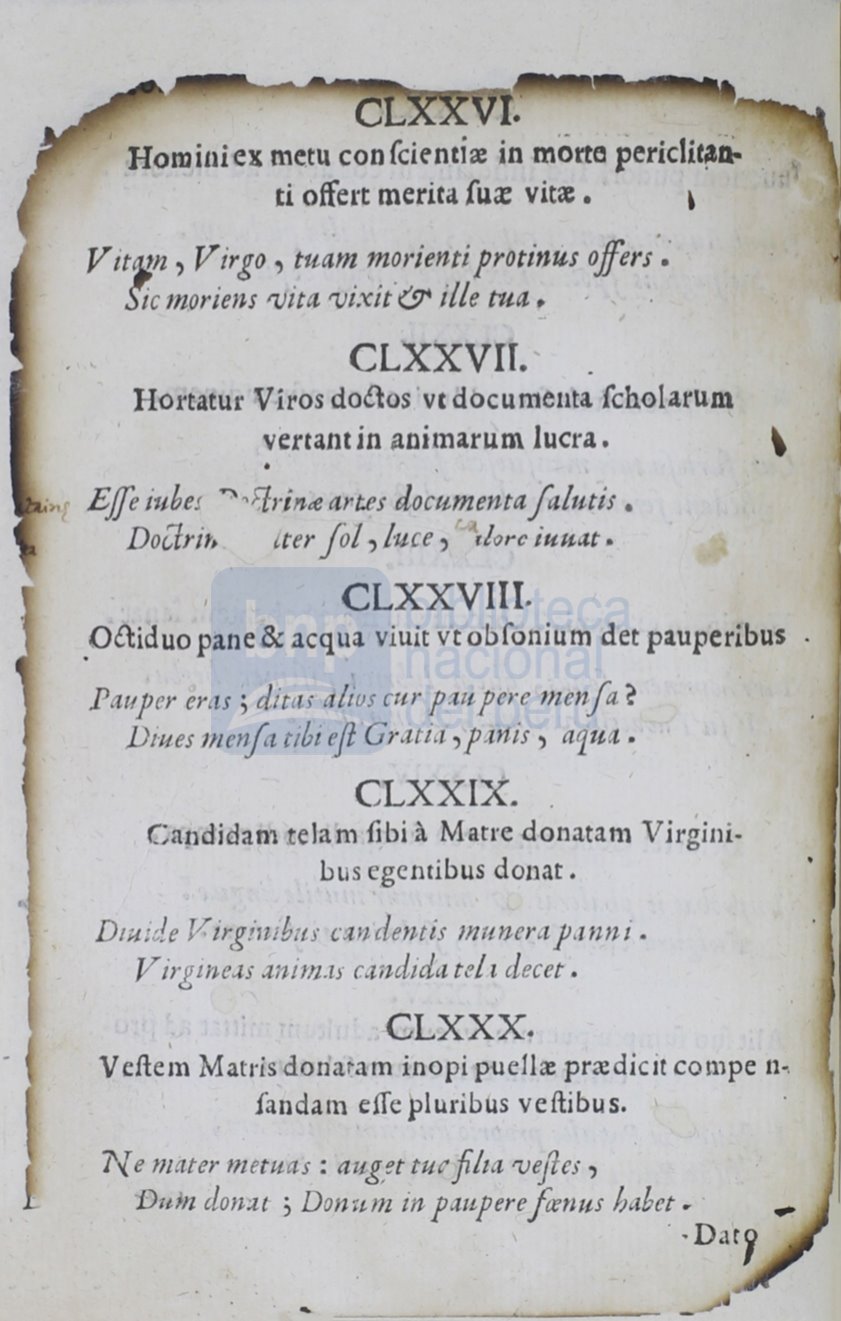 CLXXVI.
Homini ex metu conſcientiæ in morte periclitan-
ti offert merita ſuæ vitæ.
Vitam, Virgo, tuam morienti protinus offers.
Sic moriens vita vixit & ille tua.
CLXXVII.
Hortatur Viros doctos vt documenta ſcholarum
vertant in animarum lucra.
Eſſe iubes Doctrinæ artes documenta ſalutis.
Doctrin iter ſol, luce, calore iuuat.
CLXXVIII.
Octiduo pane & acqua viuit vt obſonium det pauperibus.
Pauper eras; ditas alios cur paupere menſa?
Diues menſa tibi eſt Gratia, panis, aqua.
CLXXIX.
Candidam telam ſibi à Matre donatam Virgini-
bus egentibus donat.
Diuide Virginibus candentis munera panni.
Virgineas animas candida tela decet.
CLXXX.
Veſtem Matris donatam inopi puellæ prædicit compen-
ſandam eſſe pluribus veſtibus.
Ne mater metuas: auget tuæ filia veſtes,
Dum donat; Donum in paupere fœnus habet.
Dato
bnp biblioteca
nacional
del perú